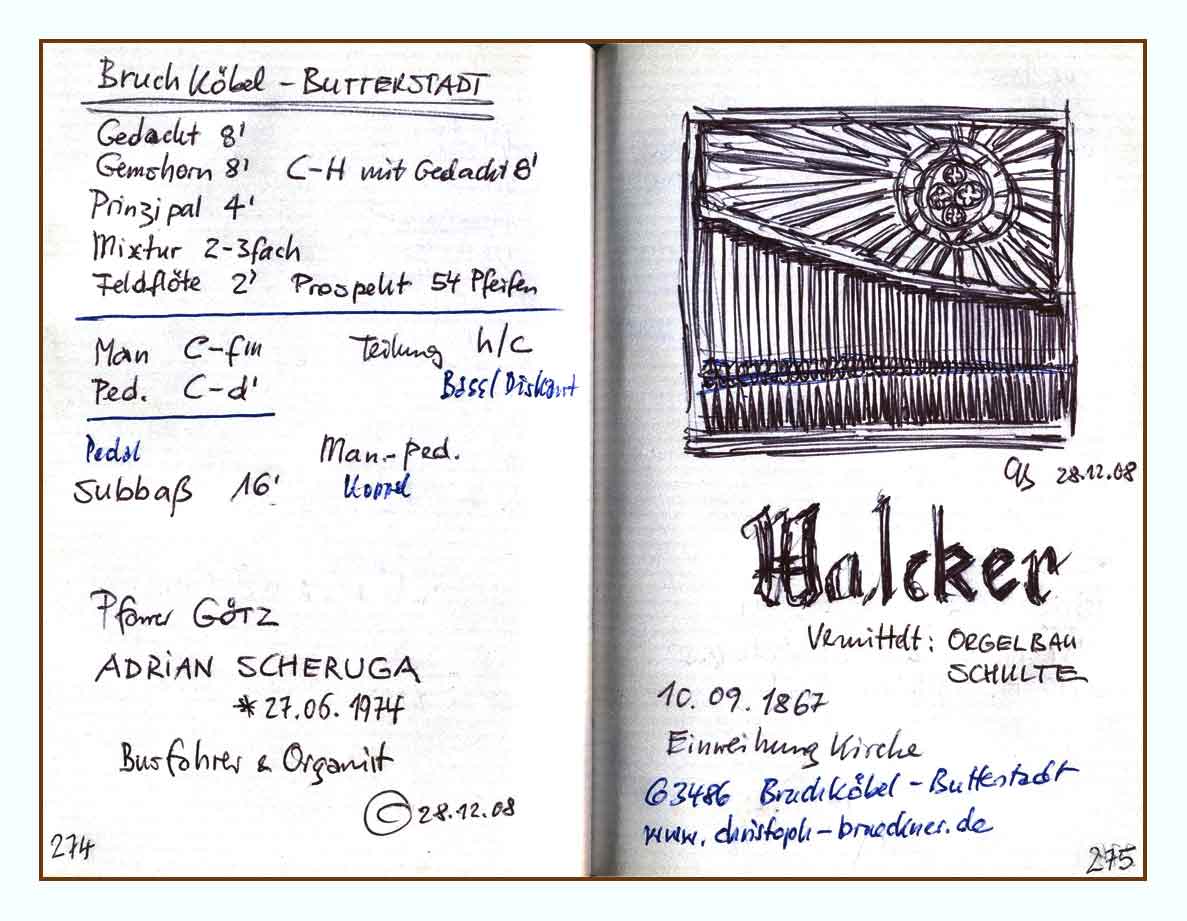 Bruchköbel - BUTTERSTADT
Gedackt 8'
Gemshorn 8' C-H mit Gedackt 8'
Prinzipal 4'
Mixtur 2-3fach
Feldflöte 2' Prospekt 54 Pfeifen
Man C-f''' Teilung h/c
Ped. C-d' Bass/Diskant
Pedal Man.-Ped.
Subbaß 16' Koppel
Pfarrer GÖTZ
ADRIAN SCHERUGA
* 27.06.1974
Busfahrer & Organist
© 28.12.08
274
28.12.08
Walcker
Vermittelt: ORGELBAU
SCHULTE
10.09.1867
Einweihung Kirche
63486 Bruchköbel - Butterstadt
www.christoph-brueckner.de
275